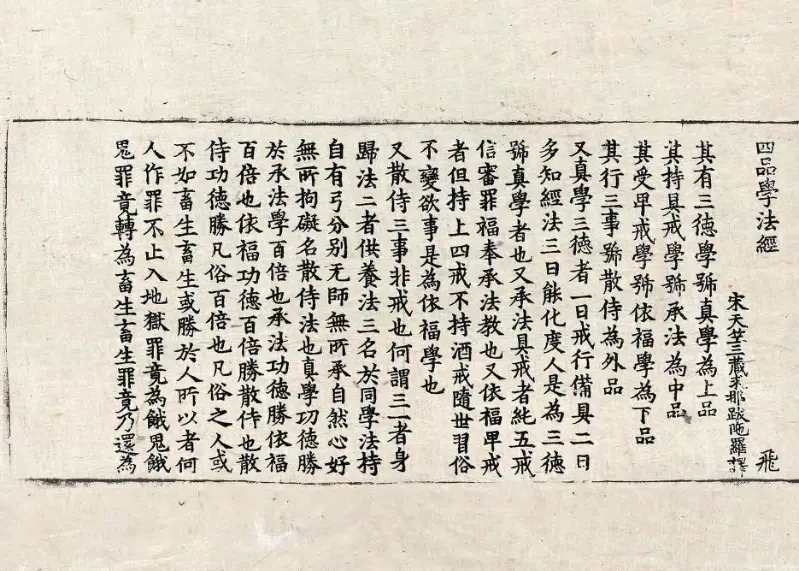 四品學法經 飛
宋天竺三藏求那跋陁羅譯
其有三德學號真學為上品
其持具戒學號承法為中品
其受卑戒學號依福學為下品
其行三事號散侍為外品
又真學三德者一日戒行備具二日
多知經法三日能化度人是為三德
號真學者也又承法具戒者純五戒
信審罪福奉承法教也又依福卑戒
者但持上四戒不持酒戒隨世習俗
不變欲事是為依福學也
又散侍三事非戒也何謂三一者身
歸法二者供養法三名於同學法持
自有弓分別无師無所承自然心好
無所拘礙名散侍法也真學功德勝
於承法學百倍也承法功德勝依福
百倍也依福功德百倍勝散侍也散
侍功德勝凡俗百倍也凡俗之人或
不如畜生畜生或勝於人所以者何
人作罪不止入地獄罪竟為餓鬼餓
鬼罪竟轉為畜生畜生罪竟乃還為